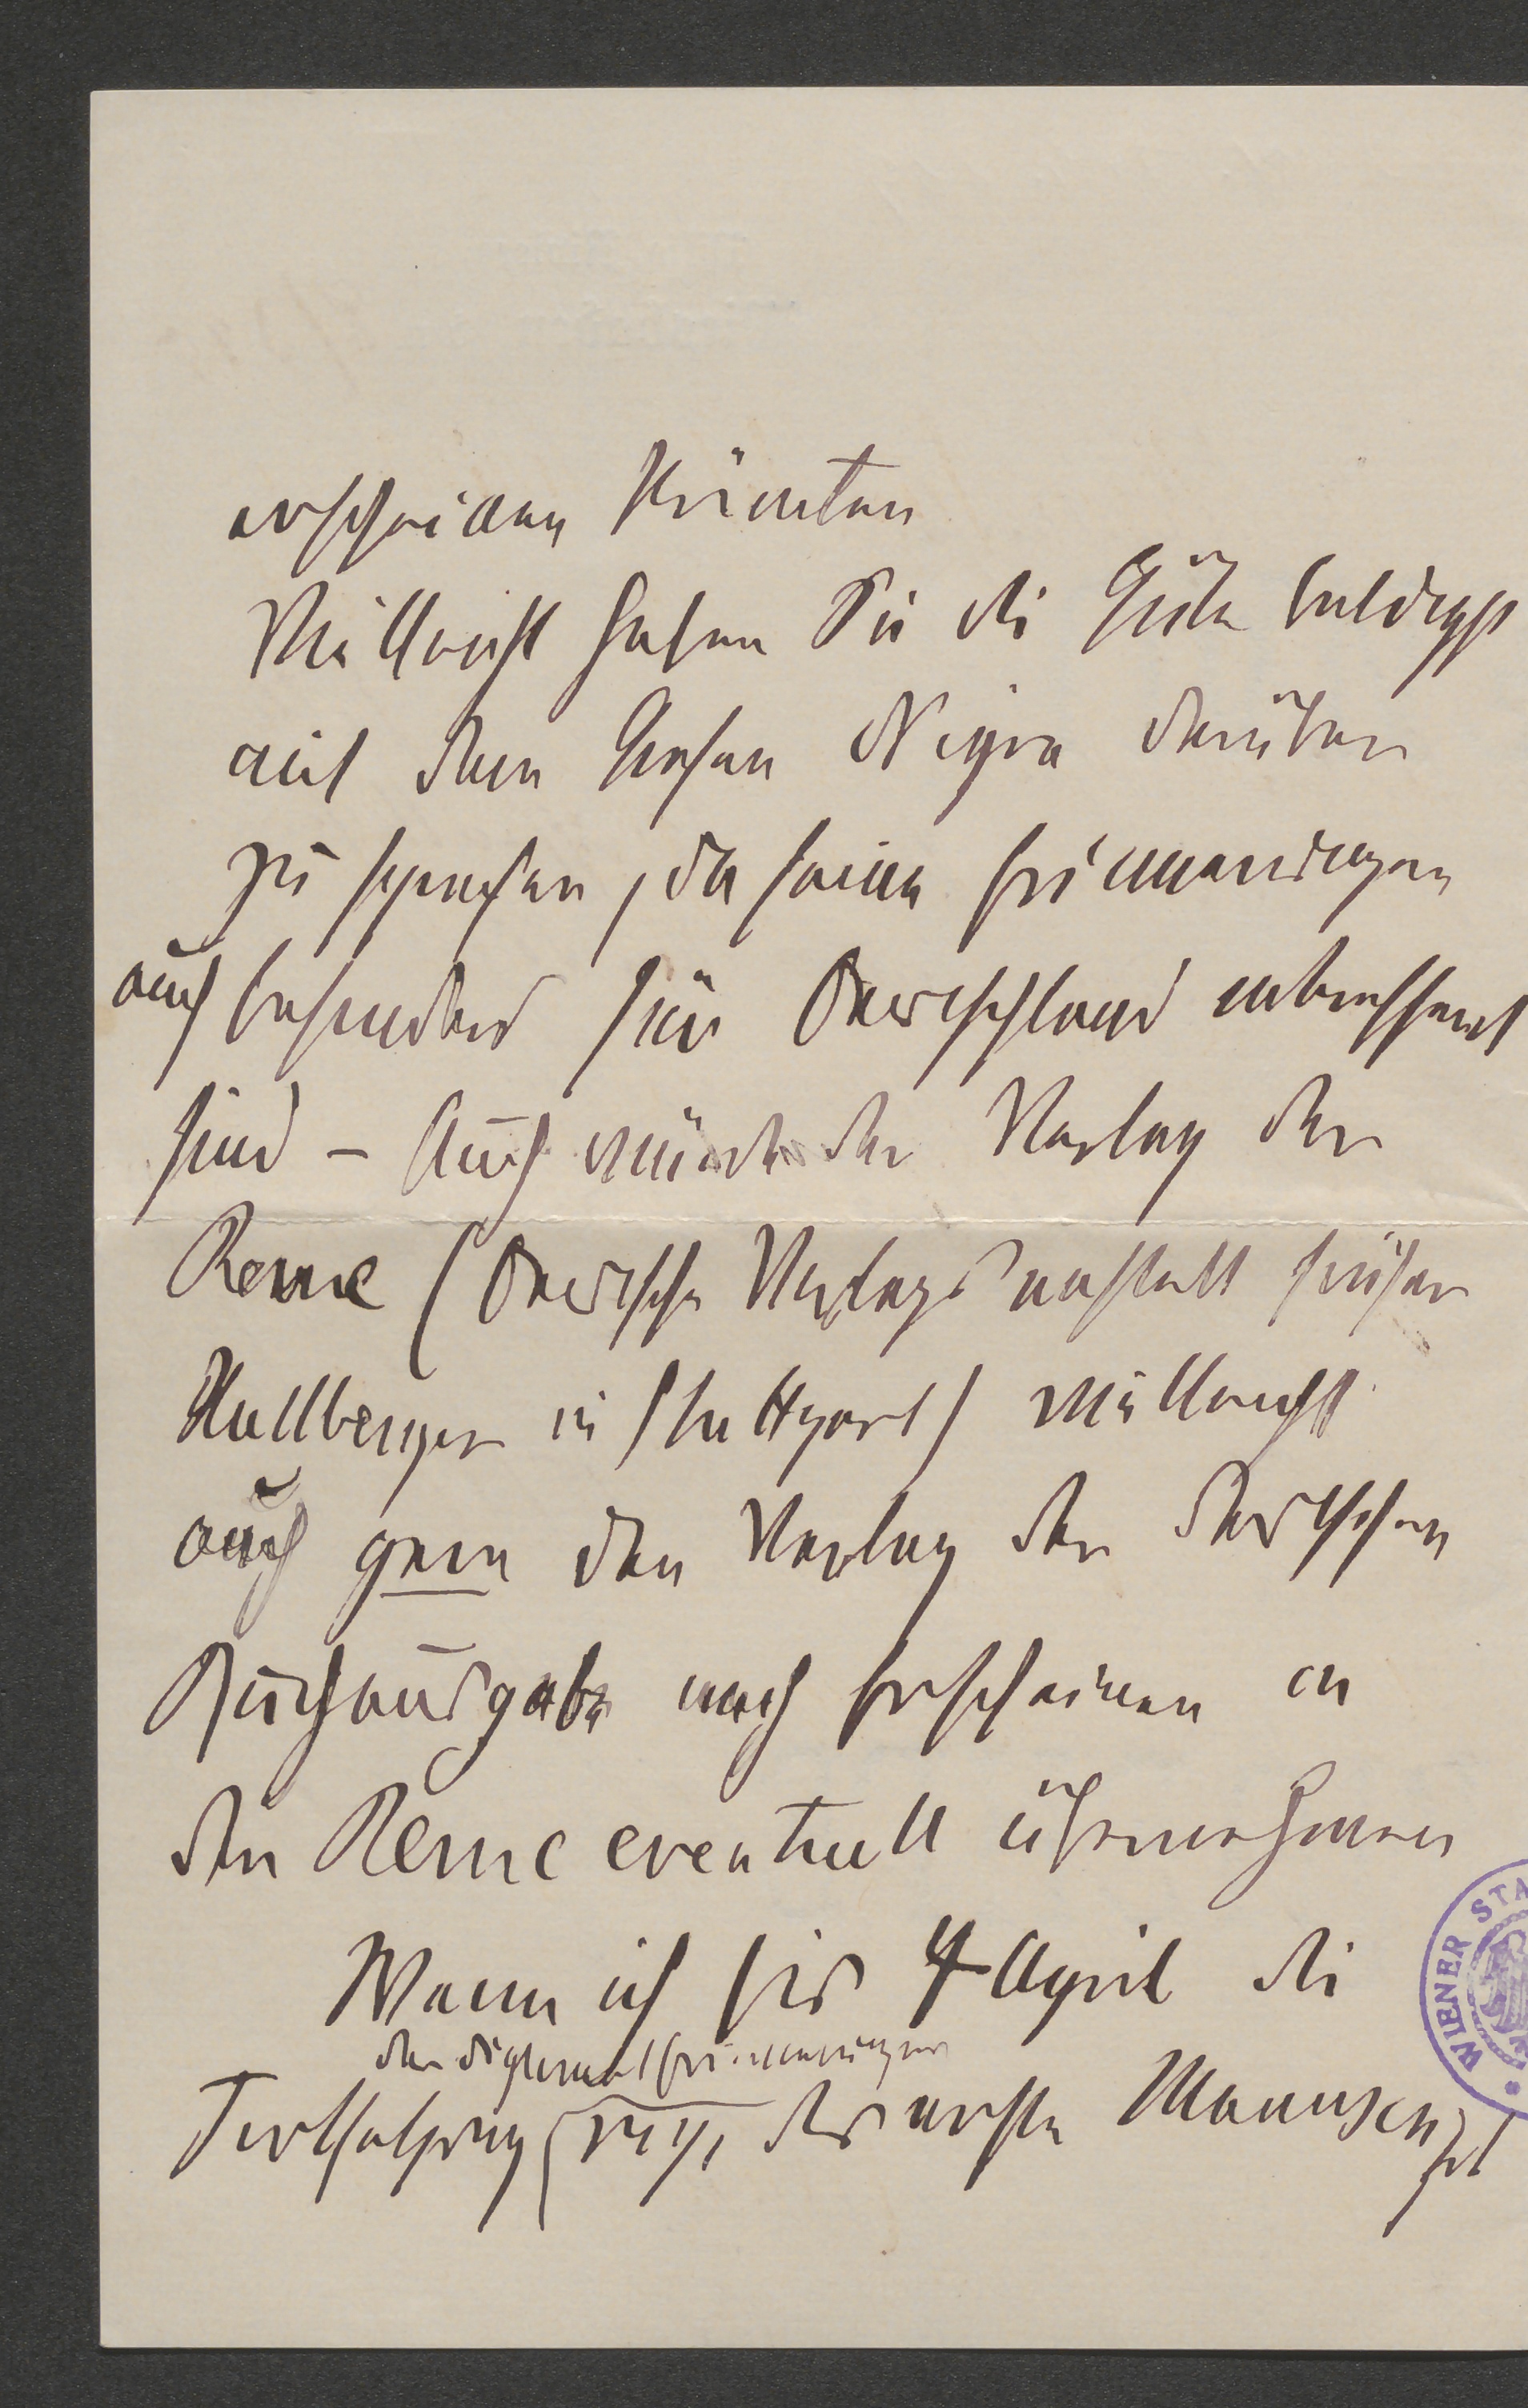 erscheinen könnten
Vielleicht haben Sie die Güte baldigst
mit dem Grafen Nigra darüber
zu sprechen, da seine Erinnerungen
auch besonders für Deutschland interessant
sind – Auch würde der Verlag der
Revue (Deutsche Verlagsanstalt früher
Hallberger in Stuttgart) vielleicht
auch gern den Verlag der deutschen
Buchausgabe nach Erscheinen in
der Revue eventuell übernehmen
Wenn ich bis 4 April die
der diplomat Erinnerungen
Fortsetzung resp. das erste Manuscript
WIENER STA